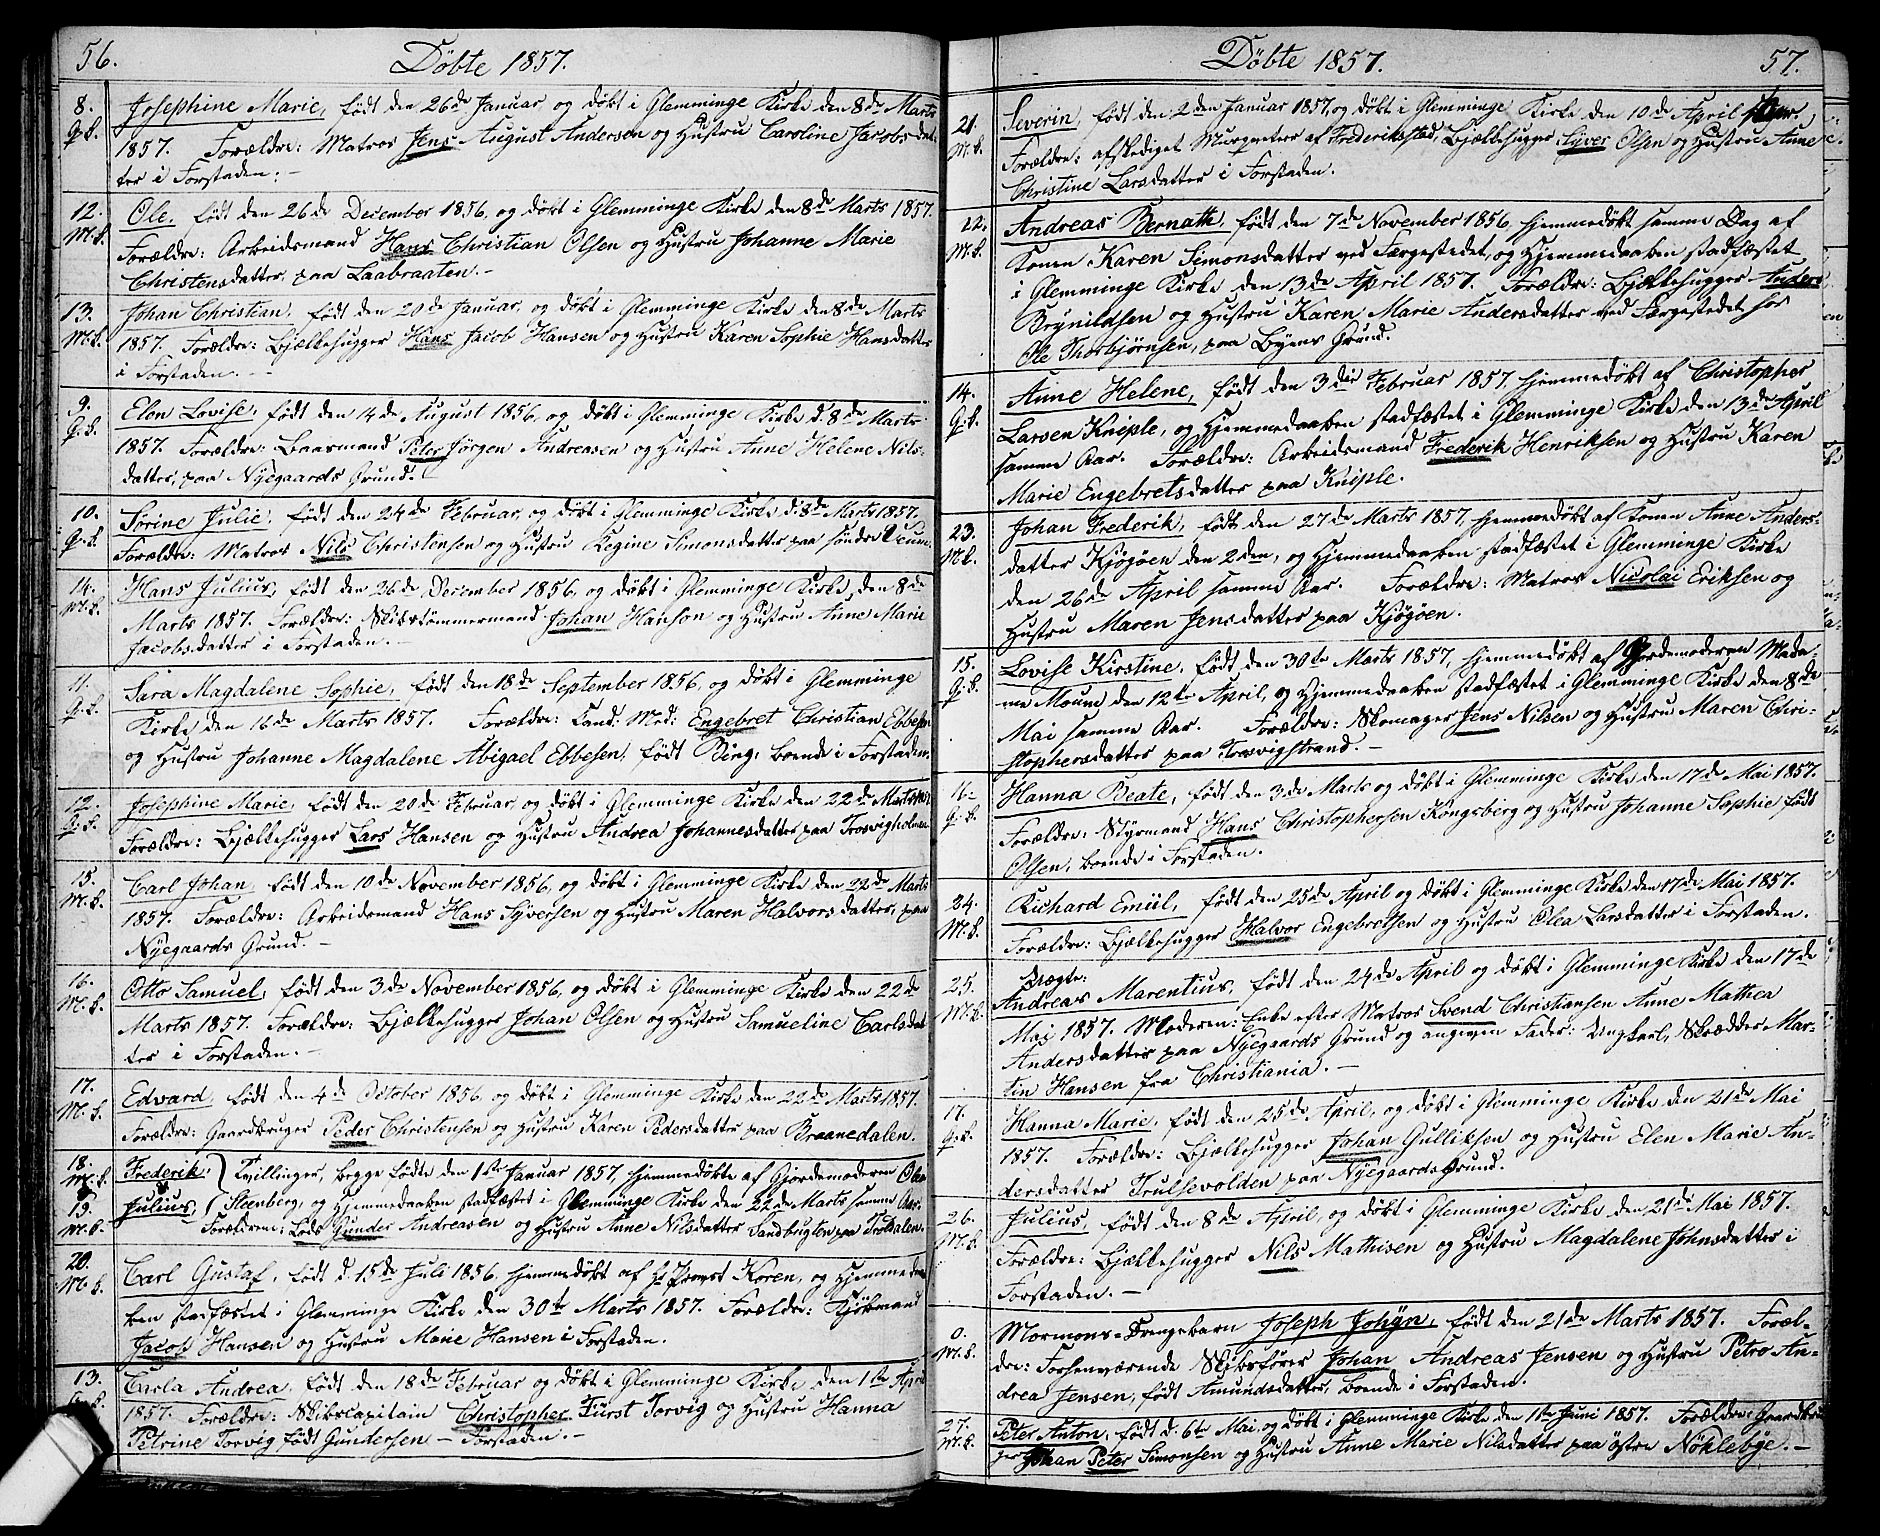 56.
Döbte 1857.
8. Josephine Marie, født den 26de Januar, og døbt i Glemminge Kirke den 8de Marts
P.B. 1857. Forældre: Matros Jens August Andersen og Hustru Caroline Jacobsdat-
ter i Forstaden. –
12. Ole, født den 26de December 1856, og døbt i Glemminge Kirke den 8de Marts 1857.
M.B. Forældre: Arbeidsmand Hans Christian Olsen og Hustru Johanne Marie
Christensdatter, paa Laabraaten. –
13. Johan Christian, født den 20de Januar, og døbt i Glemminge Kirke den 8de Marts
M.B. 1857. Forældre: Bjælkehugger Hans Jacob Hansen og Hustru Karen Sophie Hansdatter
i Forstaden. –
9. Elen Lovise, født den 14de August 1856, og døbt i Glemminge Kirke d. 8de Marts
P.B. 1857. Forældre: Baasmand Peter Jörgen Andreasen og Hustru Anne Helene Nils-
datter, paa Nyegaards Grund.
10. Sorine Julie, født den 24de Februar, og døbt i Glemminge Kirke d. 8de Marts 1857.
P.B. Forældre: Matros Nils Christensen og Hustru Regine Simonsdatter paa søndre Veum.
14. Hans Julius, født den 26de December 1856, og døbt i Glemminge Kirke, den 8de
M.B. Marts 1857. Forældre: Skibstömmermand Johan Hanson og Hustru Anne Marie
Jacobsdatter i Forstaden. –
11. Sara Magdalene Sophie, født den 18de September 1856, og døbt i Glemminge
P.B. Kirke, den 16de Marts 1857. Forældre: Cand. Med: Engebret Christian Ebbesen
og Hustru Johanne Magdalene Abigael Ebbesen, født Bing, boende i Forstaden.
12. Josephine Marie, født den 20de Februar, og døbt i Glemminge Kirke den 22de Marts 1857.
P.B. Forældre: Bjælkehugger Lars Hansen og Hustru Andrea Johannesdatter paa Trosvigholmen
15. Carl Johan, født den 10de November 1856, og døbt i Glemminge Kirke den 22de Marts
M.B. 1857. Forældre: Arbeidsmand Hans Syversen og Hustru Maren Halvorsdatter, paa
Nyegaards Grund. –
16. Otto Samuel, født den 3de November 1856, og døbt i Glemminge Kirke den 22de
M.B. Marts 1857. Forældre: Bjælkehugger Johan Olsen og Hustru Samueline Carlsdat
ter i Forstaden. –
17. Edvard, født den 4de October 1856 og døbt i Glemminge Kirke den 22de Marts 1857.
M.B. Forældre: Gaardbruger Peder Christensen og Hustru Karen Pedersdatter paa Braanedalen.
18. M.B. Frederik Tvillinger, begge fødte den 1ste Januar 1857, hjemmedøbte af Gjordemoderen
19. Julius, Steenberg, og Hjemmedaaben stadfæstet i Glemminge Kirke den 22de Marts samme Aar.
M.B. Forældrene: Lods Gunder Andreasen og Hustru Anne Nilsdatter Sandbugten paa Trosdalen.
20. Carl Gustaf, født d. 15de Juli 1856, hjemmedøbt af Hr Provst Koren, og Hjemmedaa
M.B. ben stadfæstet i Glemminge Kirke den 30te Marts 1857. Forældre: Kjöbmand
Jacob Hansen og Hustru Marie Hansen i Forstaden.
13. Carla Andrea, født den 18de Februar og døbt i Glemminge Kirke, den 1ste April
1857. Forældre: Skibscapitain Christopher Fürst Torvig og Hustru Hanna
Petrine Torvig født Gundersen – Forstaden. –
57.
Döbte 1857.
21. Severin, født den 2den Januar 1857, og døbt i Glemminge Kirke den 10de April
M.B. Forældre: afskediget Murqmeter af Frederikstad, Bjælkehugger Syver Olsen og Hustru Anne
Christine Larsdatter i Forstaden.
22. Andreas Bernath, født den 7de November 1856, hjemmedøbt samme Dag af
M.B. Konen Karen Simonsdatter ved Færgestedet, og Hjemmedaaben stadfæstet
i Glemminge Kirke den 13de April 1857. Forældre: Bjælkehugger Anders
Brynildsen og Hustru Karen Marie Andersdatter ved Færgestedet hos
Ole Thorbjørnsen, paa Byens Grund.
14. Anne Helene, født den 3die Februar 1857, hjemmedøbt af Christopher
P.B. Larsen Kniple, og Hjemmedaaben stadfæstet i Glemminge Kirke den 13de April
samme Aar. Forældre: Arbeidsmand Frederik Henriksen og Hustru Karen
Marie Engebretsdatter paa Kniple.
23. Johan Frederik, født den 27de Marts 1857, hjemmedøbt af Konen Anne Anders-
M.B. datter Kjøgøen den 2den, og Hjemmedaaben stadfæstet i Glemminge Kirke
den 26de April samme Aar. Forældre: Matros Nicolai Eriksen og
Hustru Maren Jensdatter paa Kjøgøen.
15. Lovise Kirstine, født den 30te Marts 1857, hjemmedøbt af Gjordemoderen Mada-
P.B. me Moum den 12te April, og Hjemmedaaben stadfæstet i Glemminge Kirke den 8de
Mai samme Aar. Forældre: Skomager Jens Nilsen og Hustru Maren Chri-
stophersdatter paa Trosvigstrand. –
16. Hanna Beate, født den 3de Marts og døbt i Glemminge Kirke den 17de Mai 1857.
P.B. Forældre: Styrmand Hans Christophersen Kongsberg og Hustru Johanne Sophie født
Olsen, boende i Forstaden.
24. Richard Emiil, født den 25de April og døbt i Glemminge Kirke den 17de Mai 1857.
M.B. Forældre: Bjælkehugger Halvor Engebretsen og Hustru Olea Larsdatter i Forstaden.
Uægte:
25. Andreas Marentius, født den 24de April og døbt i Glemminge Kirke den 17de
M.B. Mai 1857. Moderen: Enke efter Matros Svend Christiansen Anne Mathea
Andersdatter paa Nyegaards Grund og angiven Fader: Ungkarl, Skrædder Mar-
tin Hansen fra Christiania. –
17. Hanna Marie, født den 25de April, og døbt i Glemminge Kirke den 21de Mai
P.B. 1857. Forældre: Bjælkehugger Johan Gulliksen og Hustru Elen Marie An-
dersdatter Trullsevolden paa Nyegaards Grund.
26. Julius, født den 8de April, og døbt i Glemminge Kirke den 21de Mai 1857.
M.B. Forældre: Bjælkehugger Nils Mathisen og Hustru Magdalene Johnsdatter i
Forstaden. –
0. Mormons-Drengebarn Joseph Johyn, født den 21de Marts 1857. Foræl-
M.B. dre: Forhenværende Skibsfører Johan Andreas Jensen og Hustru Petro An-
drea Jensen, født Amundsdatter, boende i Forstaden.
27. Peter Anton, født d. 6te Mai, og døbt i Glemminge Kirke den 1ste Juni 1857. Forældre: Gaardbru
M.B. ger Johan Peter Simonsen og Hustru Anne Marie Nilsdatter paa östre Nöklebye. –